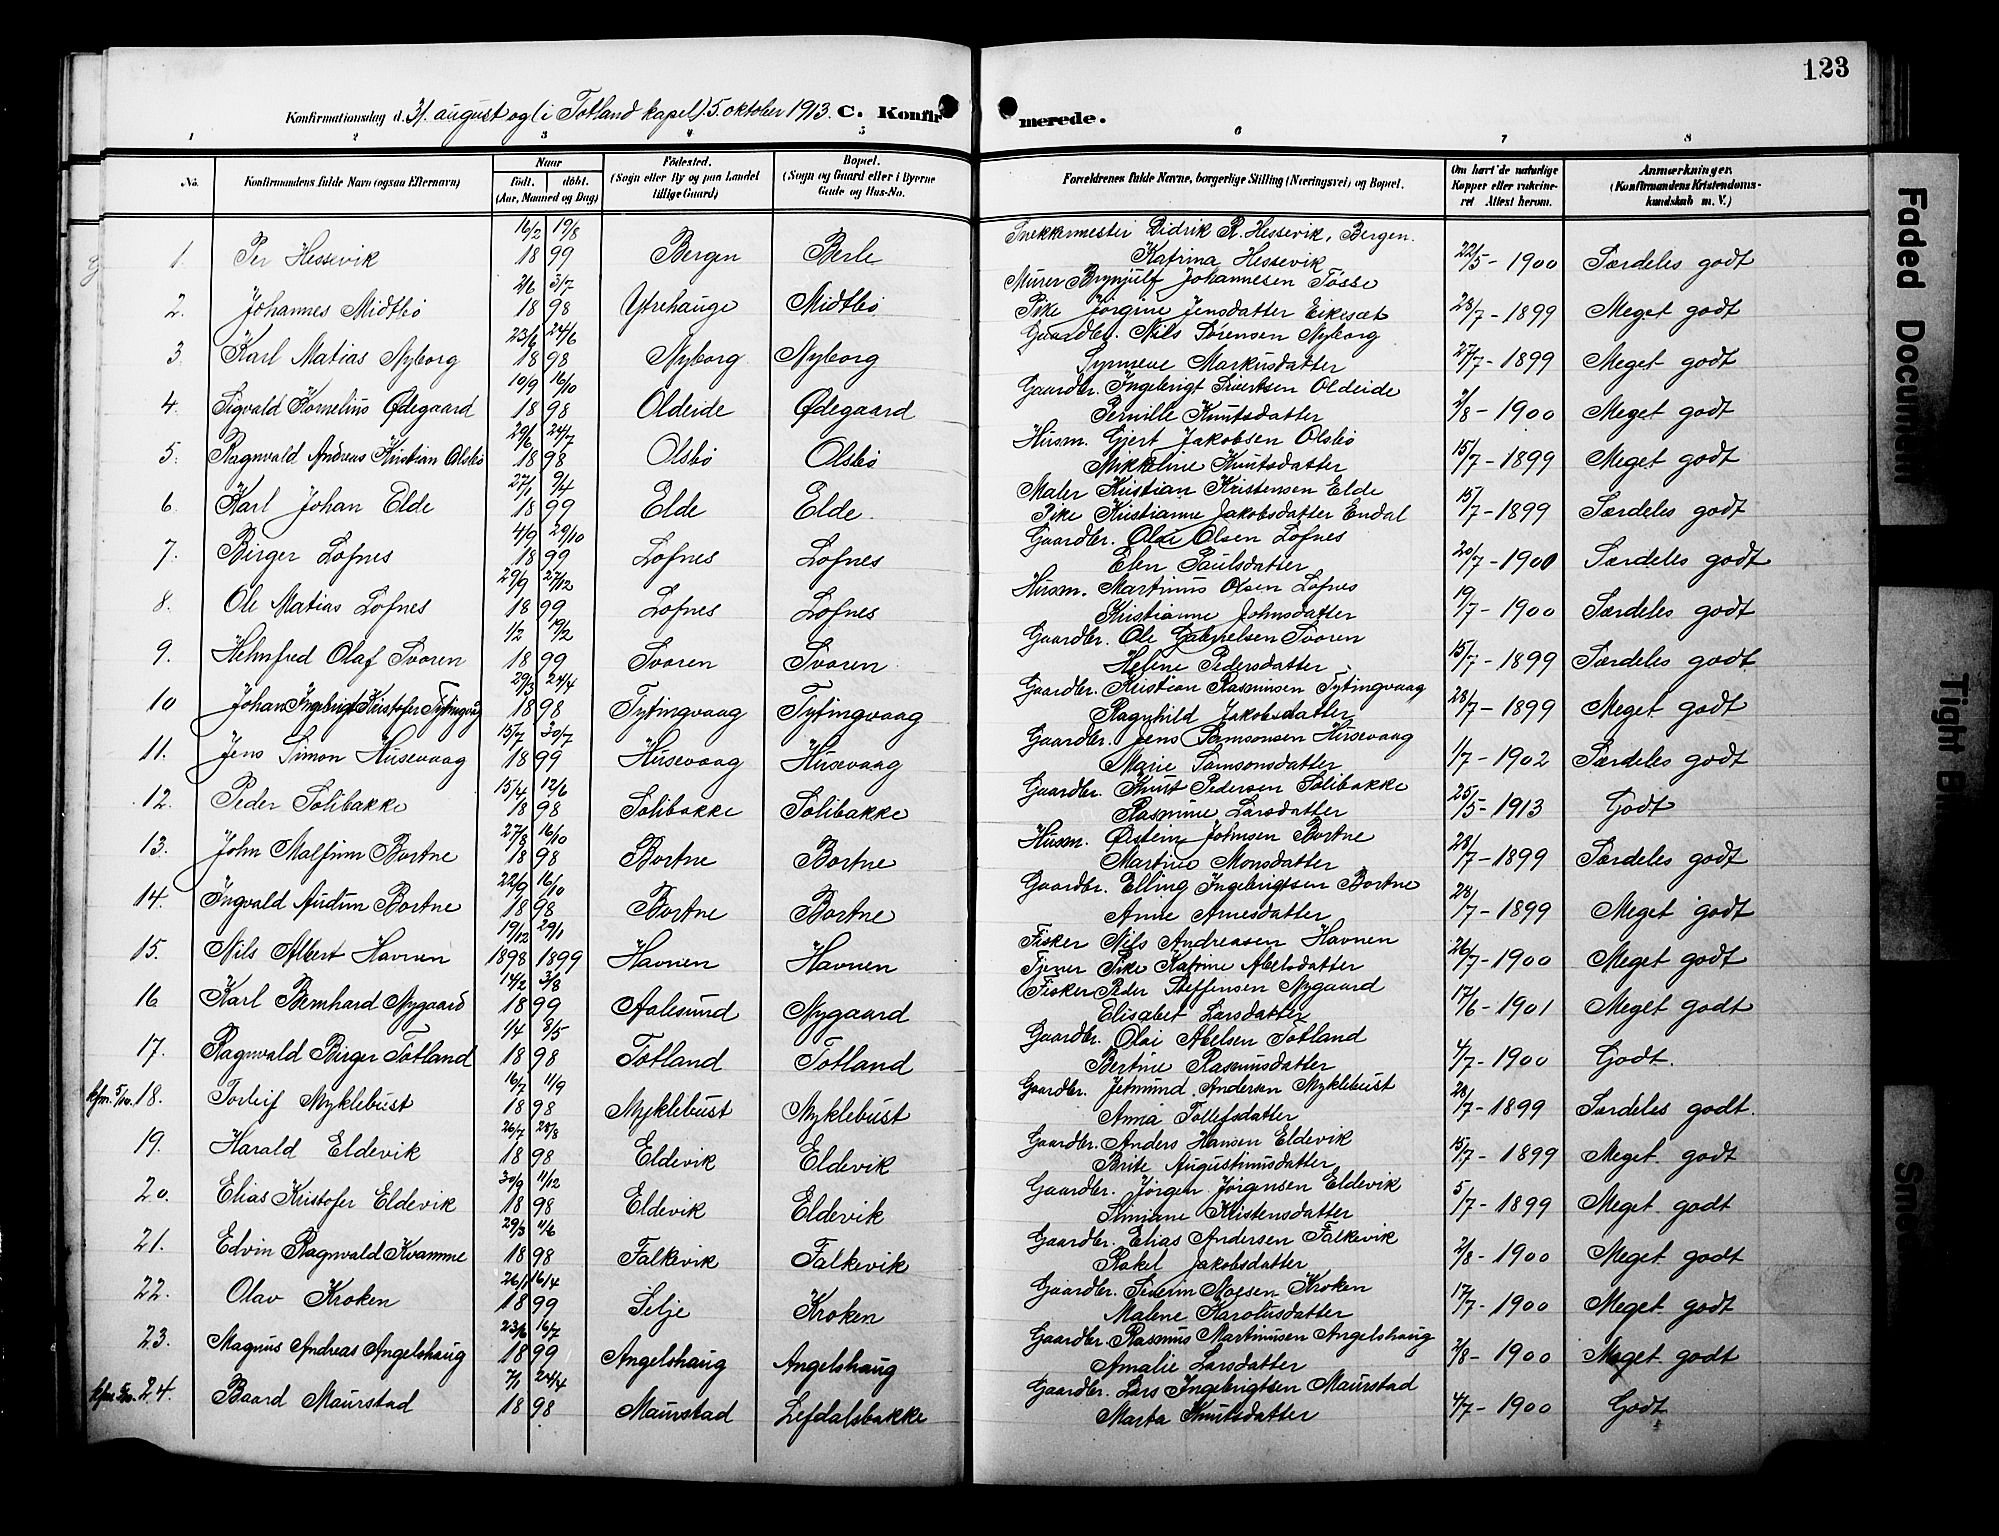 123
Konfirmationsdag d. 31. august og (i Totland kapel) 5. oktober 1913. C. Konfirmerede.
1 2 3 4 5 6 7 8
No. Konfirmandens fulde Navn (ogsaa Efternavn) Naar født. døbt. (Aar, Maaned og Dag) Fødested. (Sogn eller By og paa Landet tillige Gaard) Bopæl. (Sogn og Gaard eller i Byerne Gade og Hus-No. Forældrenes fulde Navne, borgerlige Stilling (Næringsvei) og Bopæl. Om havt de naturlige Kopper eller vakcineret Attest herom. Anmærkninger. (Konfirmandens Kristendomskundskab m. V.)
16/2 19/8 Snekkermester Didrik R. Hessevik, Bergen.
1. Per Hessevik 18 99 Bergen Berle Katrina Hessevik 22/5 - 1900 Særdeles godt
2/6 3/7 Murer Brynjulf Johannesen Tosse
2. Johannes Midtbø 18 98 Ytrehauge Midtbø Pike Jørgine Jensdatter Eikesæt 28/7 - 1899 Meget godt
23/6 24/6 Gaardbr. Nils Sørensen Nyborg
3. Karl Matias Nyborg 18 98 Nyborg Nyborg Synneve Markusdatter 27/7 - 1899 Meget godt
10/9 16/10 Gaardbr. Ingebrigt Sivertsen Oldeide
4. Sigvald Kornelius Ødegaard 18 98 Oldeide Ødegaard Pernille Knutsdatter 2/8 - 1900 Meget godt
29/6 24/7 Husm. Gjert Jakobsen Olsbø
5. Ragnvald Andreas Kristian Olsbø 18 98 Olsbø Olsbø Mikkeline Knutsdatter 15/7 - 1899 Meget godt
27/1 9/4 Maler Kristian Kristensen Elde
6. Karl Johan Elde 18 99 Elde Elde. Pike Kristianne Jakobsdatter Endal 15/7 - 1899 Særdeles godt
4/9 29/10 Gaardbr. Olai Olsen Lofnes
7. Birger Lofnes 18 99 Lofnes Lofnes Elen Paulsdatter 20/7 - 1900 Særdeles godt
29/9 27/12 Husm. Martinus Olsen Lofnes
8. Ole Matias Lofnes 18 99 Lofnes Lofnes Kristianne Johnsdatter 19/7 - 1900 Særdeles godt
1/2 19/2 Gaardbr. Ole Gabrielsen Svoren
9. Helmfred Olaf Svoren 18 99 Svoren Svoren Helene Pedersdatter 15/7 - 1899 Særdeles godt
29/3 24/4 Gaardbr. Kristian Rasmusen Tytingvaag
10 Johan Ingebrigt Kristofer Tytingvaag 18 98 Tytingvaag Tytingvaag Ragnhild Jakobsdatter 28/7 - 1899 Meget godt
15/7 30/7 Gaardbr. Jens Samsonsen Husevaag
11. Jens Simon Husevaag 18 99 Husevaag Husevaag Marie Samsonsdatter 1/7 - 1902 Særdeles godt
15/4 12/6 Gaardbr. Knut Pedersen Solibakke
12. Peder Solibakke 18 98 Solibakke Solibakke Rasmine Larsdatter 25/5 - 1913 Godt
27/8 16/10 Husm. Østein Johnsen Bortne
13. John Malfinn Bortne 18 98 Bortne Bortne Martine Monsdatter 28/7 - 1899 Særdeles godt
22/9 16/10 Gaardbr. Elling Ingebrigtsen Bortne
14. Ingvald Audun Bortne 18 98 Bortne Bortne Anne Arnesdatter 28/7 - 1899 Meget godt
19/12 29/1 Fisker Nils Andreasen Havnen
15. Nils Albert Havnen 1898 1899 Havnen Havnen Tjener Pike Katrine Abelsdatter 26/7 - 1900 Meget godt
14/2 3/8 Fisker Peder Steffensen Nygaard
16 Karl Bernhard Nygaard 18 99 Aalesund Nygaard Elisabet Larsdatter 17/6 - 1901 Meget godt
1/4 8/5 Gaardbr. Olai Abelsen Totland
17. Ragnvald Birger Totland 18 98 Totland Totland Bertine Rasmusdatter 4/7 - 1900 Godt.
16/7 11/9 Gaardbr. Jetmund Andersen Myklebust
kfm. 5/10. 18. Torleif Myklebust 18 98 Myklebust Myklebust Anna Tollefsdatter 28/7 - 1899 Særdeles godt.
26/7 28/8 Gaardbr. Anders Hansen Eldevik
19. Harald Eldevik 18 98 Eldevik Eldevik Brite Augustinusdatter 15/7 - 1899 Meget godt
30/9 11/12 Gaardbr. Jørgen Jørgensen Eldevik
20. Elias Kristofer Eldevik 18 98 Eldevik Eldevik Simiane Kristensdatter 5/7 - 1899 Meget godt
29/3 11/6 Gaardbr. Elias Andersen Falkevik
21. Edvin Ragnvald Kvamme 18 98 Falkevik Falkevik Rakel Jakobsdatter 2/8 - 1900 Meget godt
26/1 16/4 Gaardbr. Severin Moesen Kroken
22. Olav Kroken 18 99 Selje Kroken Malene Karolusdatter 17/7 - 1900 Meget godt
23/6 16/7 Gaardbr. Rasmus Martinusen Angelshaug
23. Magnus Andreas Angelshaug 18 99 Angelshaug Angelshaug Amalie Larsdatter 2/8 - 1900 Meget godt
7/1 24/4 Gaardbr. Lars Ingebrigtsen Maurstad
kfm. 5/10. 24. Baard Maurstad 18 98 Maurstad Lefdalsbakke Marta Knutsdatter 4/7 - 1900 Godt
Faded Document
Tight Bi